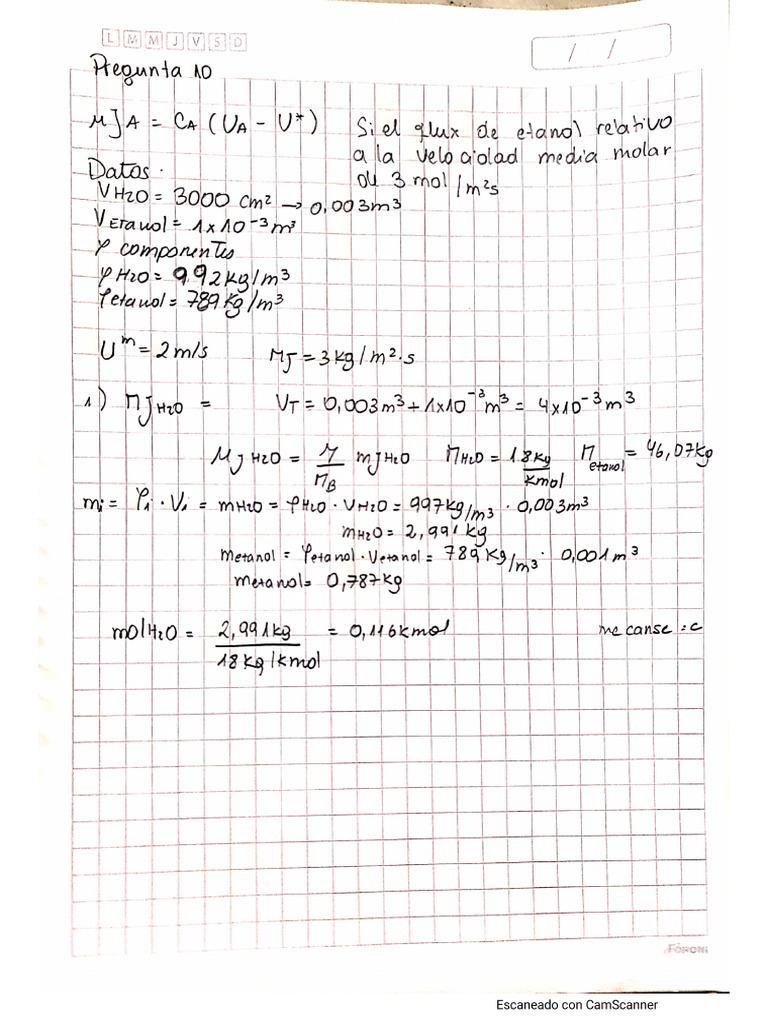 L M M J V S D
/ /
Pregunta 10
MJA = CA (UA - U*) Si el flux de etanol relativo
a la velocidad media molar
de 3 mol/m²s
Datos.
VH2O = 3000 cm² → 0,003m³
VEtanol = 1x10⁻³m³
ρ componentes
ρH2O = 992kg/m³
ρetanol = 789Kg/m³
Uᵐ = 2m/s MJ = 3kg/m²·s
1) MJH2O = VT = 0,003m³ + 1x10⁻³m³ = 4x10⁻³m³
MJH2O = M/MB mJH2O MH2O = 18kg/kmol Metanol = 46,07Kg
mi = ρi · Vi = mH2O = ρH2O · VH2O = 997kg/m³ · 0,003m³
mH2O = 2,991 kg
metanol = ρetanol · Vetanol = 789 Kg/m³ · 0,001m³
metanol = 0,787kg
molH2O = 2,991kg / 18Kg/kmol = 0,116kmol me canse :c
FORONI
Escaneado con CamScanner